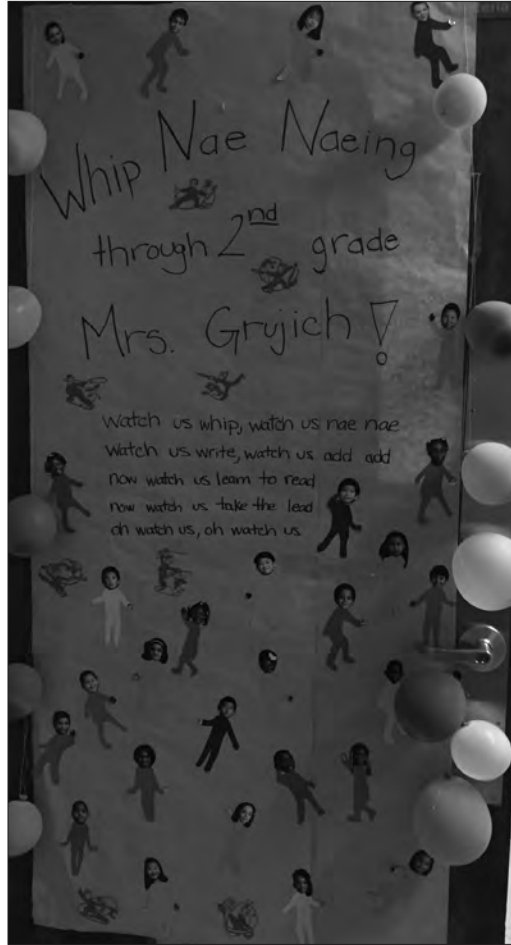 Whip Nae Naeing
through 2nd grade
Mrs. Grujich!
Watch us whip, watch us nae nae
Watch us write, watch us add add
now watch us learn to read
now watch us take the lead
oh watch us, oh watch us